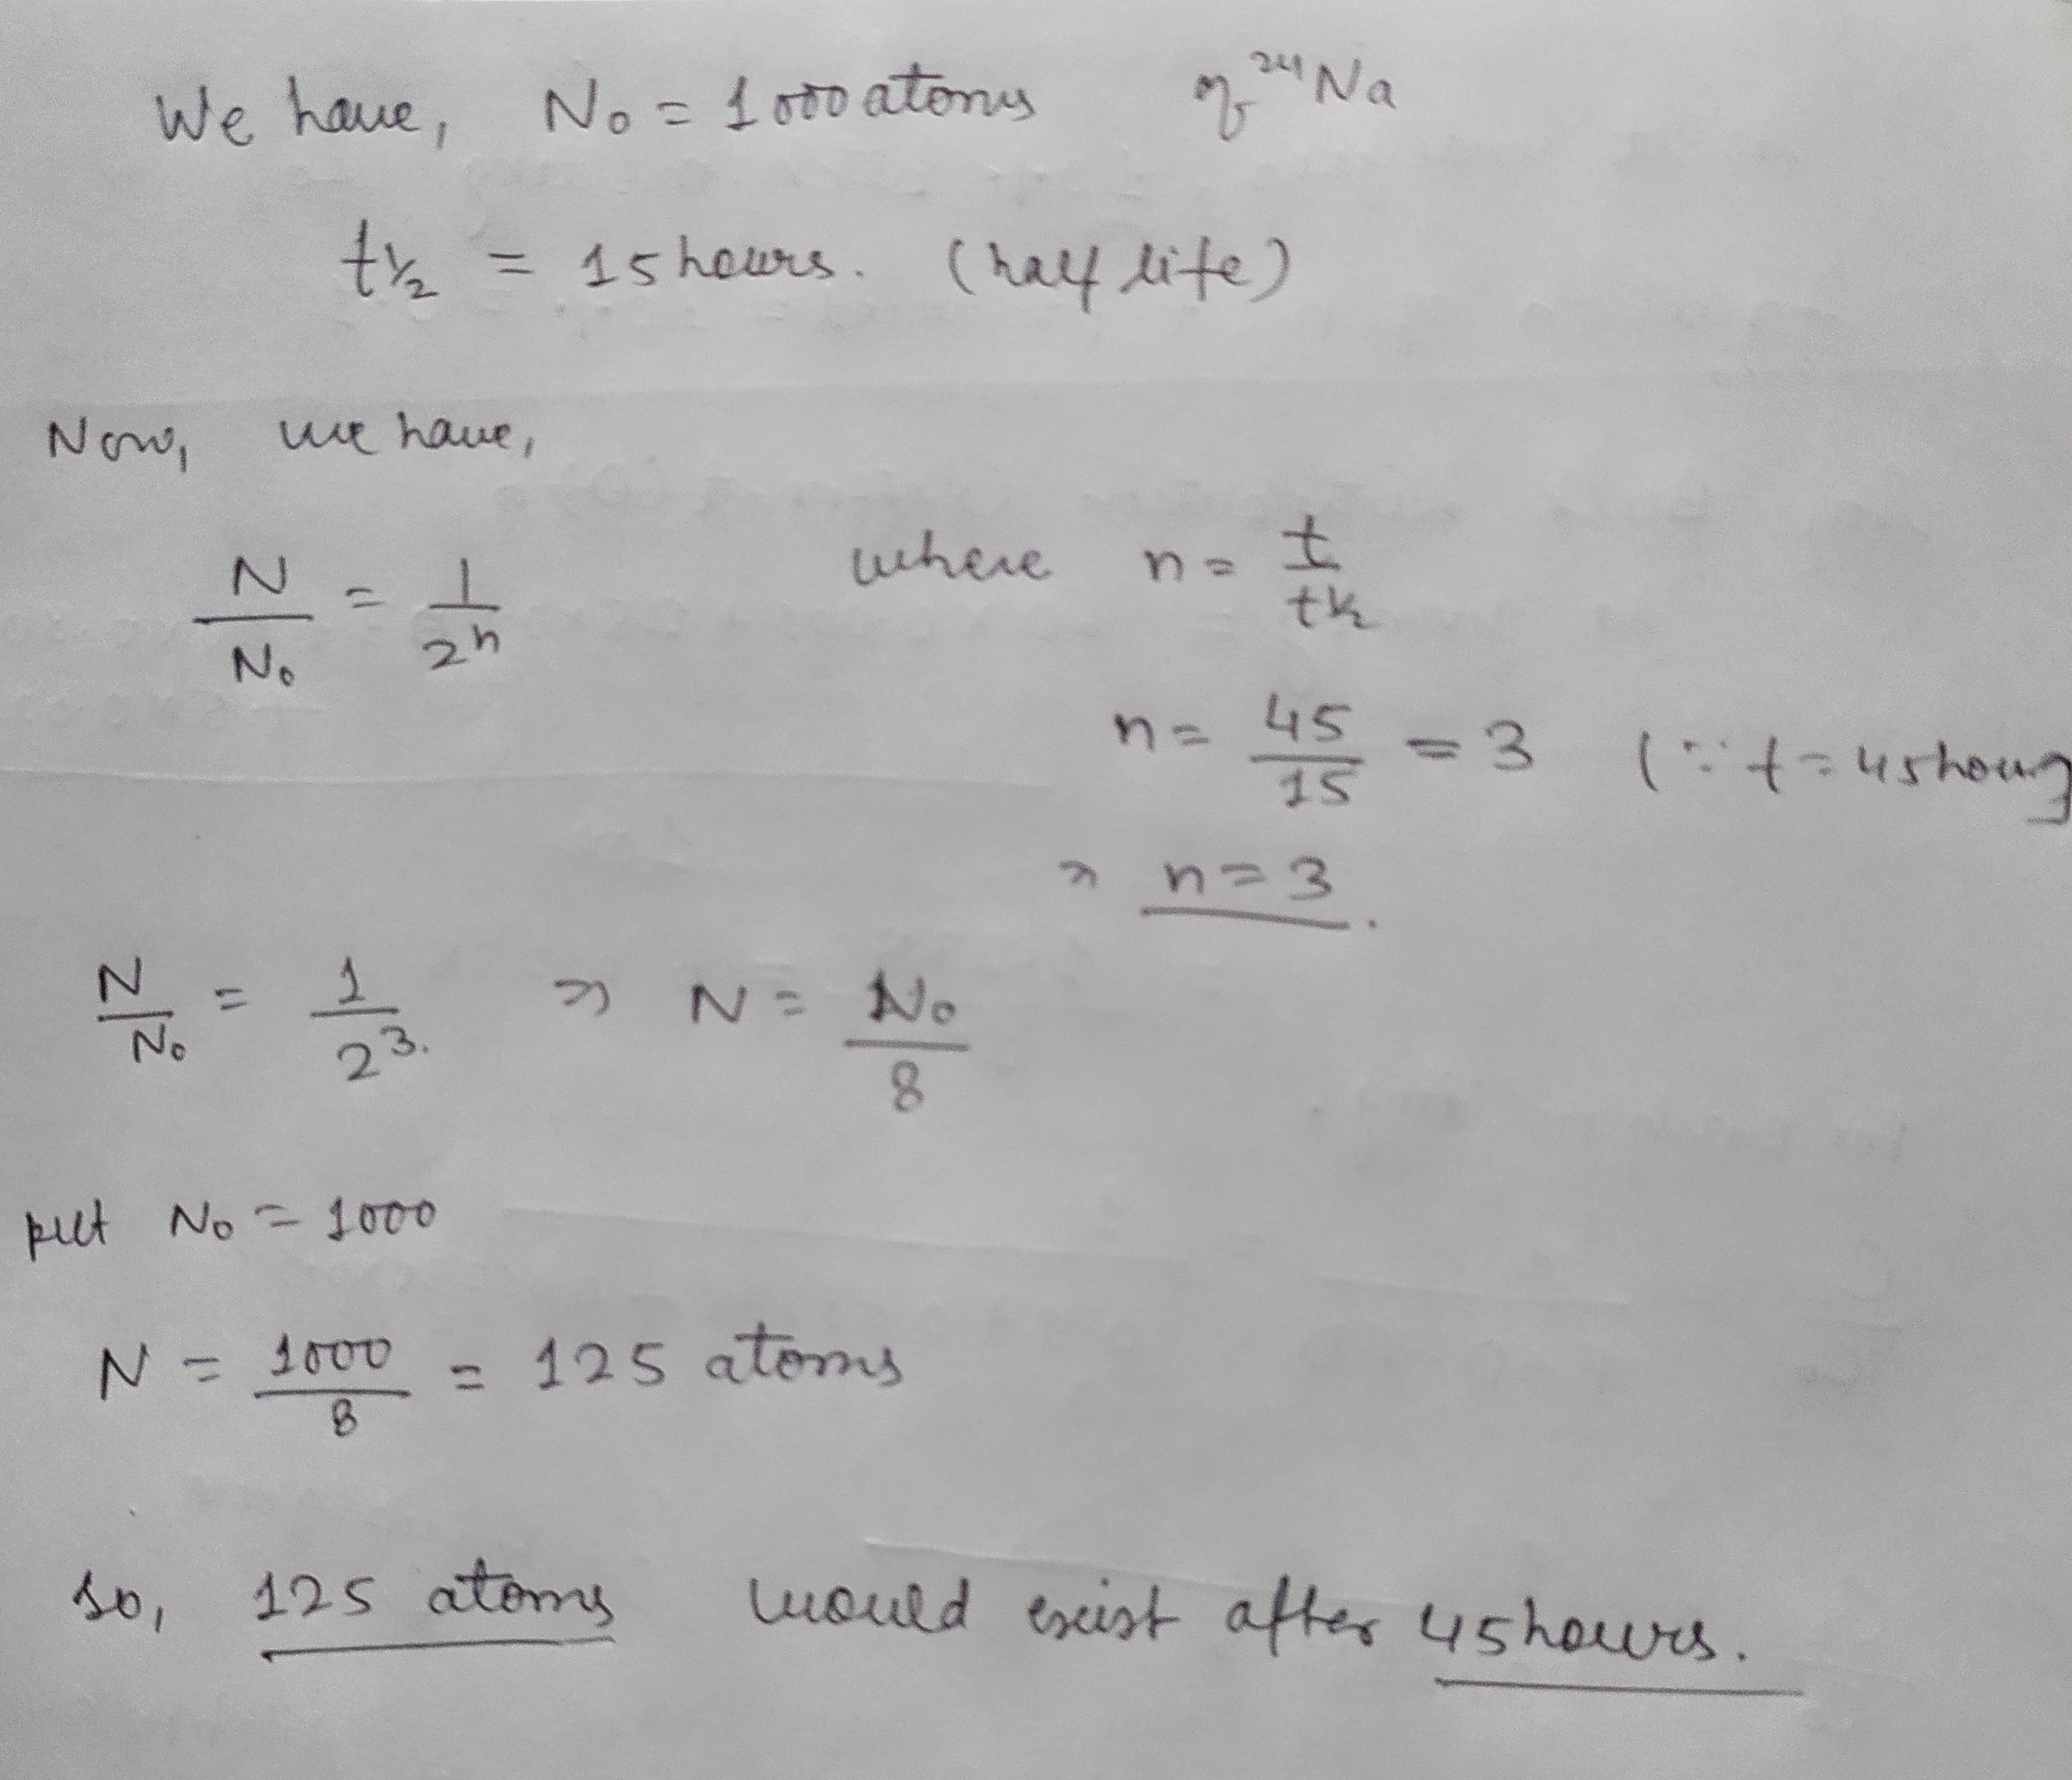 We have, N₀ = 1000 atoms of ²⁴Na
t½ = 15 hours. (half life)
Now, we have,
N/N₀ = 1/2ⁿ where n = t/t½
n = 45/15 = 3 (∵ t = 45 hours)
⇒ n = 3.
N/N₀ = 1/2³. ⇒ N = N₀/8
put N₀ = 1000
N = 1000/8 = 125 atoms
so, 125 atoms would exist after 45 hours.